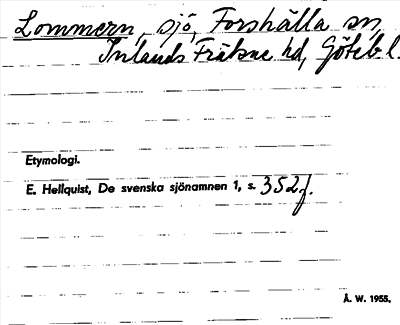 Lommern, sjö, Forshälla sn
Inlands Fräkne hd, Göteb. l.
Etymologi.
E. Hellquist, De svenska sjönamnen 1, s. 352 f.
Å. W. 1955.